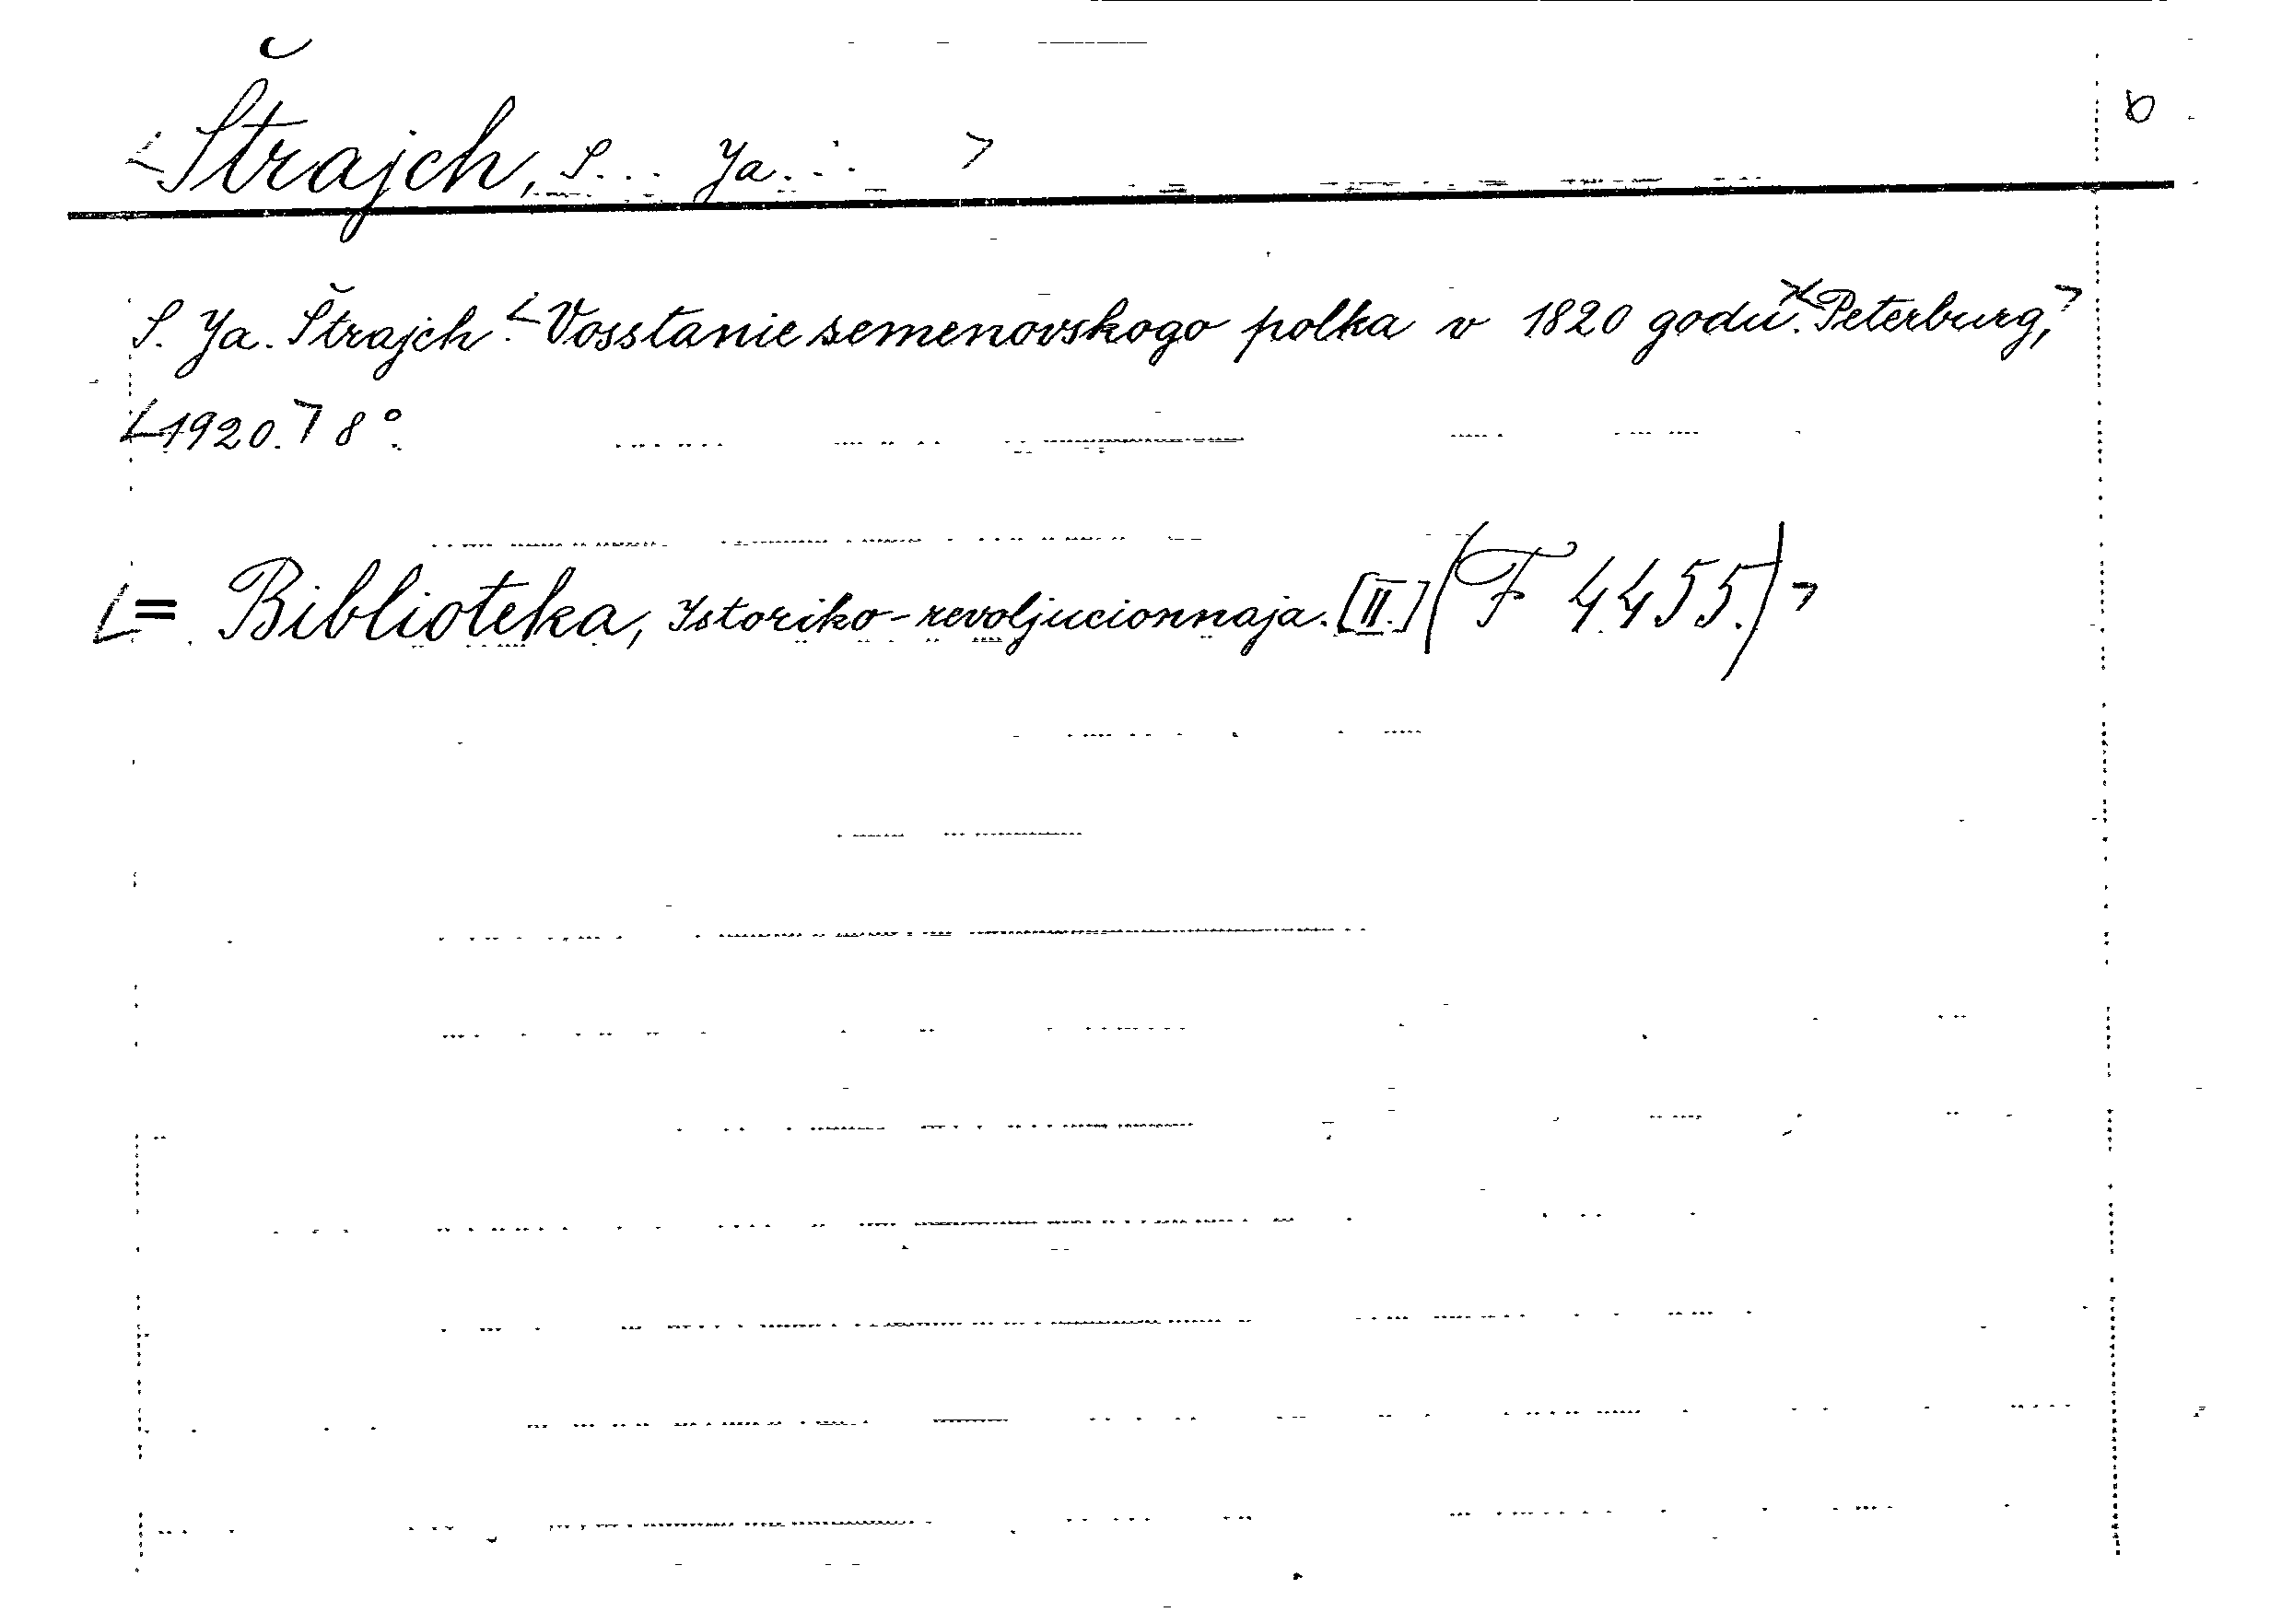 Štrajch, S... Ya...
S. Ya. Štrajch. Vosstanie semenovskogo polka v 1820 godu. Peterburg,
1920. 8°.
= Biblioteka, Istoriko-revoljucionnaja. [II.] (F 4455.)